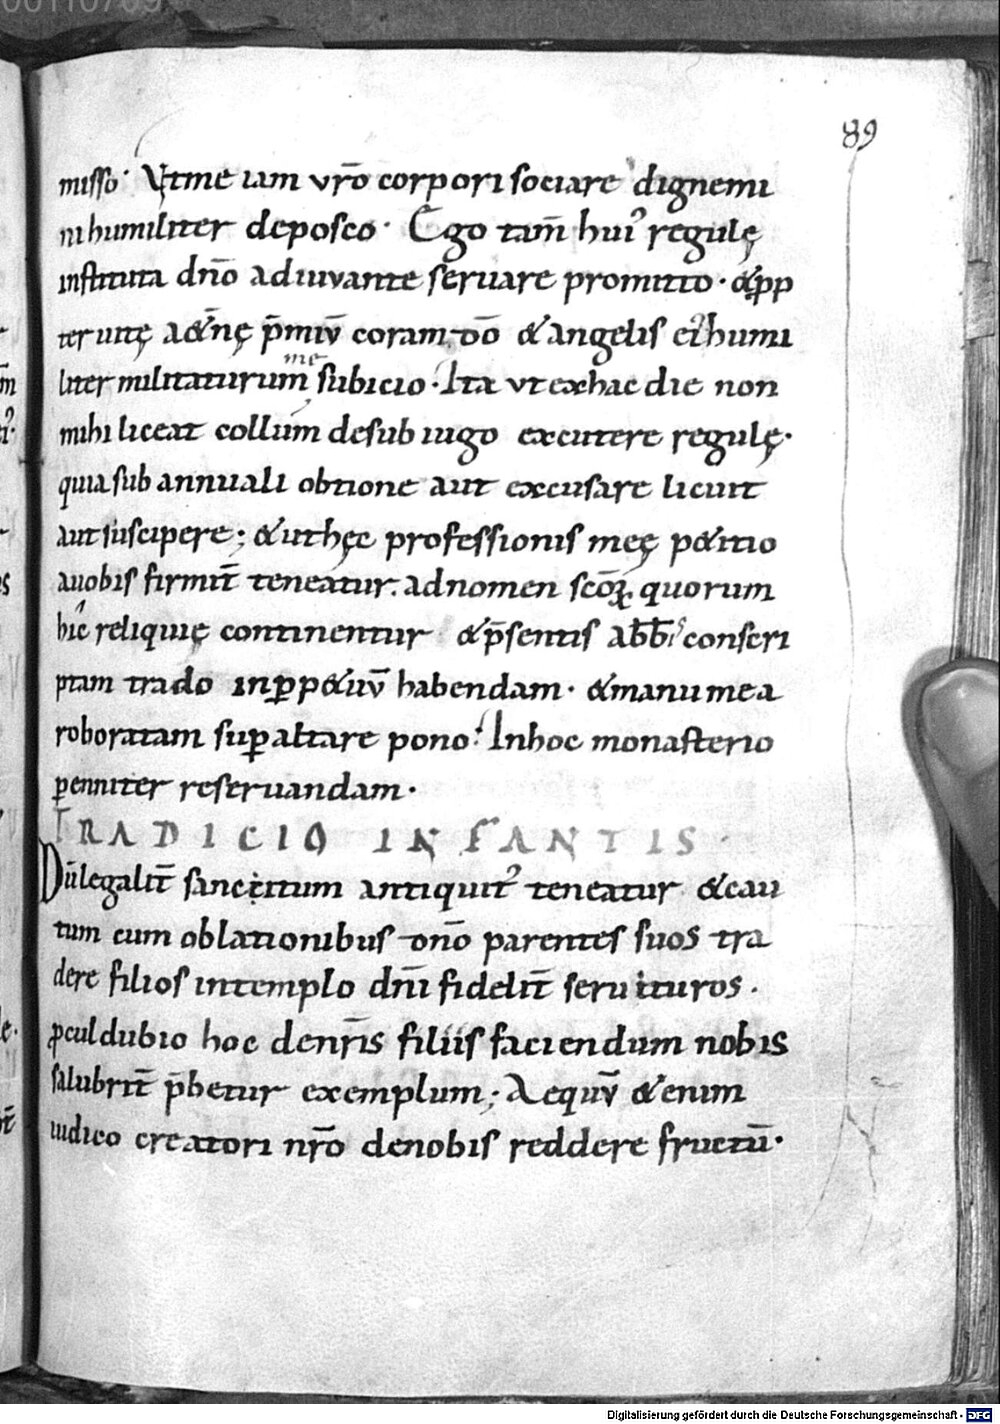 89
misso· Vt me iam vr̄o corpori sociare dignemi
ni humiliter deposco· Ego tam̄ huiꝰ regulę
instituta dn̄o adiuvante servare promitto· &ꝓp
ter vitę a&̄nę p̄miū coram dō & angelis eiꝰ humi
me
liter militaturum subicio· Ita vt ex hac die non
mihi liceat collum desub iugo excutere regulę·
quia sub annuali obtione aut excusare licuit
aut suscipere; & ut hęc professionis meę p&itio
a uobis firmit̄ teneatur. ad nomen scōꝝ quorum
hic reliquię continentur & p̄sentis abb̄is conscri
ptam trado in ꝑp&uū habendam· & manu mea
roboratam suꝑ altare pono· In hoc monasterio
ꝑenniter reservandam·
TRADICIO INFANTIS·
Dū legalit̄ sanccitum antiquitꝰ teneatur & cau
tum cum oblationibus dn̄o parentes suos tra
dere filios in templo dn̄i fidelit̄ servituros·
ꝓcul dubio hoc de nr̄is filiis faciendum nobis
salubrit̄ p̄betur exemplum; Aequū &enim
iudico creatori nr̄o de nobis reddere fructū·
Digitalisierung gefördert durch die Deutsche Forschungsgemeinschaft - DFG